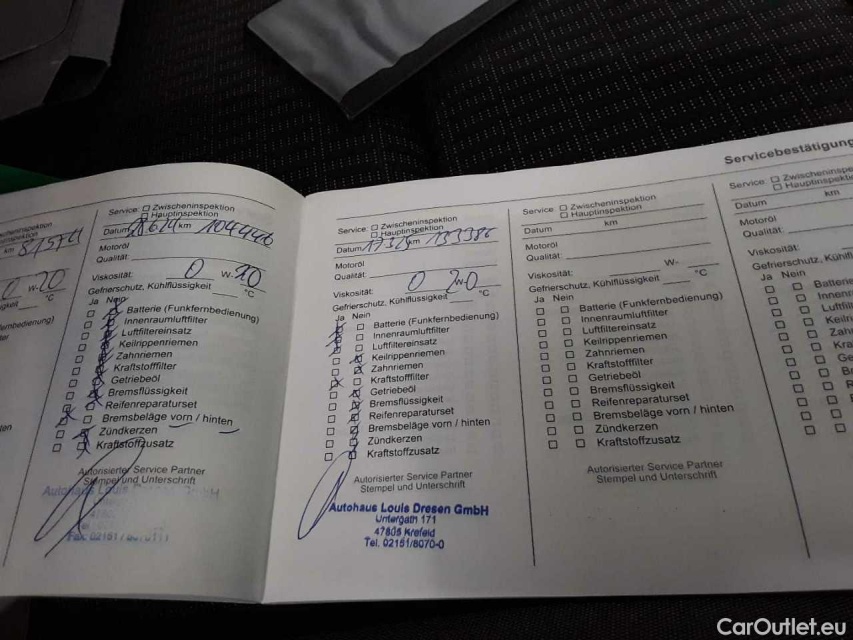 Servicebestätigung
Service: Zwischeninspektion
Hauptinspektion
Datum km 104446
Motoröl
Qualität:
Viskosität: 0 W- 20
Gefrierschutz, Kühlflüssigkeit °C
Ja Nein
Batterie (Funkfernbedienung)
Innenraumluftfilter
Luftfiltereinsatz
Keilrippenriemen
Zahnriemen
Kraftstofffilter
Getriebeöl
Bremsflüssigkeit
Reifenreparaturset
Bremsbeläge vorn / hinten
Zündkerzen
Kraftstoffzusatz
Autorisierter Service Partner
Stempel und Unterschrift
Autohaus Louis Dresen GmbH
Service: Zwischeninspektion
Hauptinspektion
Datum km
Motoröl
Qualität:
Viskosität: 0 W- 20
Gefrierschutz, Kühlflüssigkeit °C
Ja Nein
Batterie (Funkfernbedienung)
Innenraumluftfilter
Luftfiltereinsatz
Keilrippenriemen
Zahnriemen
Kraftstofffilter
Getriebeöl
Bremsflüssigkeit
Reifenreparaturset
Bremsbeläge vorn / hinten
Zündkerzen
Kraftstoffzusatz
Autorisierter Service Partner
Stempel und Unterschrift
Autohaus Louis Dresen GmbH
Untergath 171
47805 Krefeld
Tel. 02151/8070-0
Service: Zwischeninspektion
Hauptinspektion
Datum km
Motoröl
Qualität:
Viskosität: W-
Gefrierschutz, Kühlflüssigkeit °C
Ja Nein
Batterie (Funkfernbedienung)
Innenraumluftfilter
Luftfiltereinsatz
Keilrippenriemen
Zahnriemen
Kraftstofffilter
Getriebeöl
Bremsflüssigkeit
Reifenreparaturset
Bremsbeläge vorn / hinten
Zündkerzen
Kraftstoffzusatz
Autorisierter Service Partner
Stempel und Unterschrift
Service: Zwischeninspektion
Hauptinspektion
Datum km
Motoröl
Qualität:
Viskosität:
Gefrierschutz, Kühlfl
Ja Nein
CarOutlet.eu